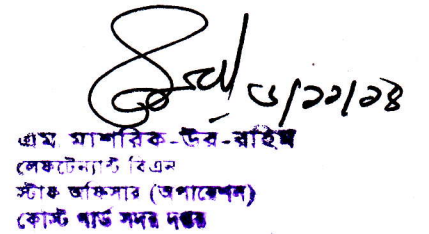 ৩/১১/১৪
এম মাশরিক-উর-রহিম
লেফটেন্যান্ট বিএন
স্টাফ অফিসার (অপারেশন)
কোস্ট গার্ড সদর দপ্তর